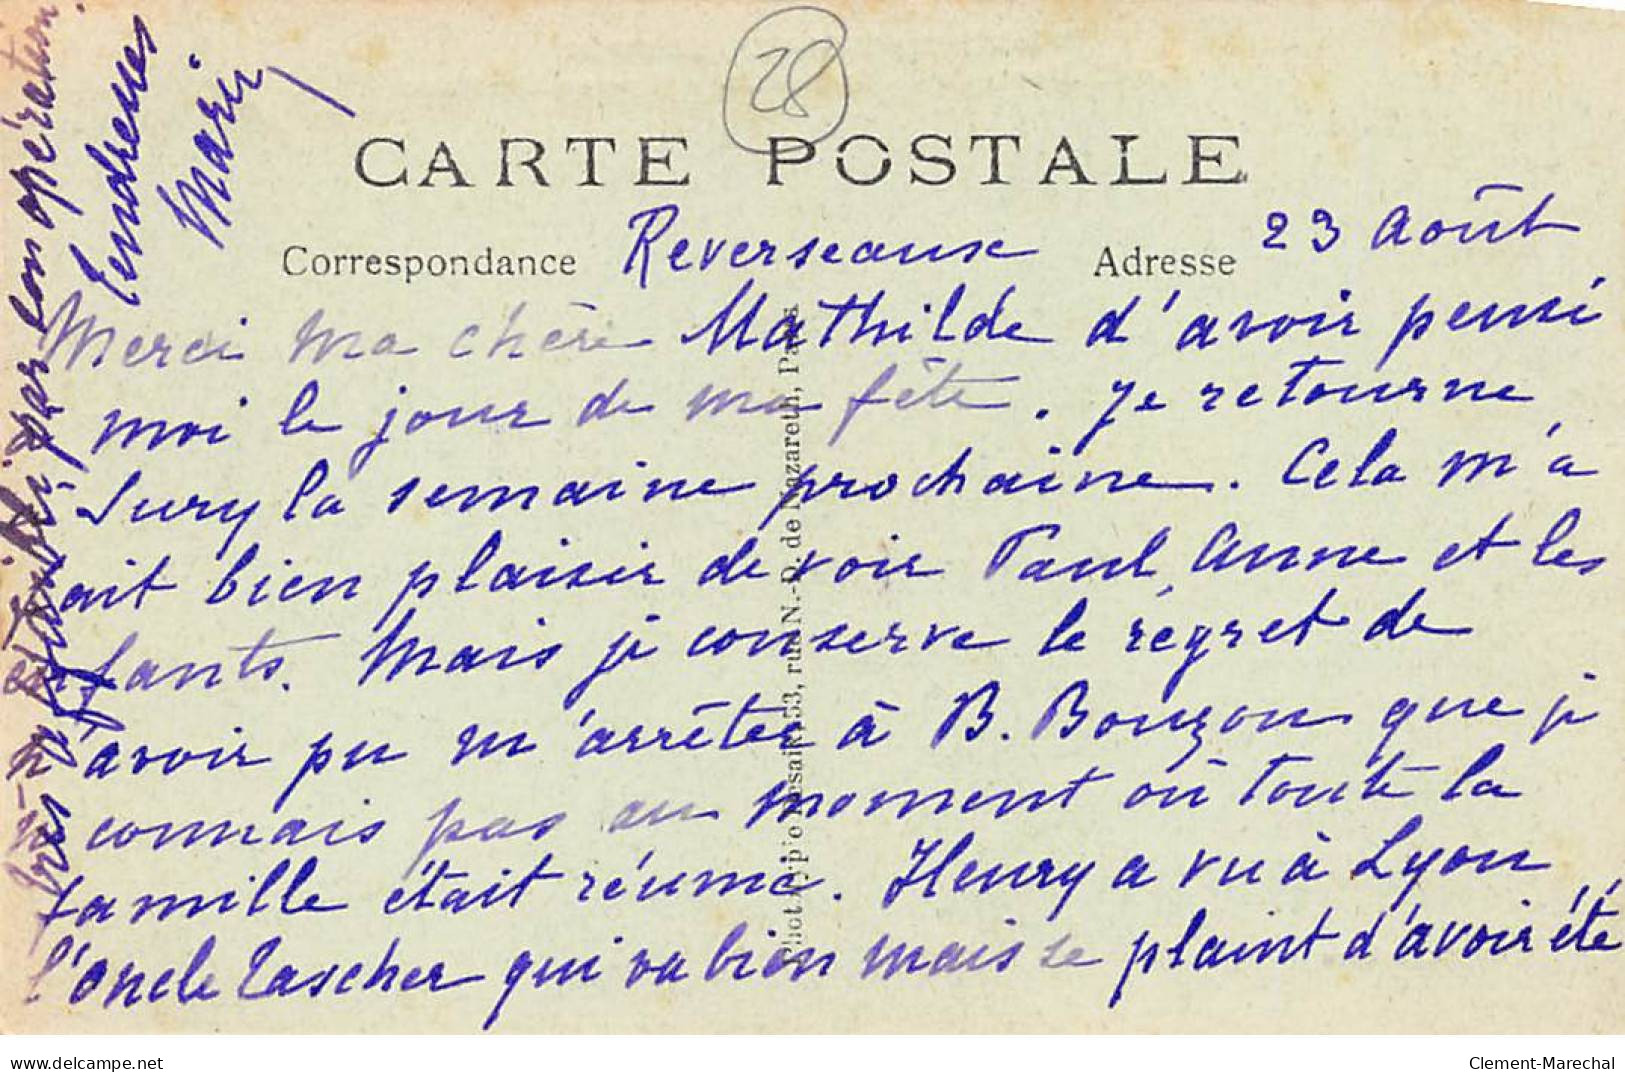 28
CARTE POSTALE
Correspondance
Adresse
Reverseaux 23 août
Merci ma chère Mathilde d'avoir pensé
moi le jour de ma fête. Je retourne
Sury la semaine prochaine. Cela m'a
fait bien plaisir de voir Paul, Anne et les
enfants. Mais je conserve le regret de
n'avoir pu m'arrêter à B. Bouzon que je
connais pas au moment où toute la
famille était réunie. Henry a vu à Lyon
l'oncle Tascher qui va bien mais se plaint d'avoir été
très affaibli par son opération.
Tendresses
Marie
53, rue N.-D. de Nazareth, Paris
delcampe.net
Clement-Marechal